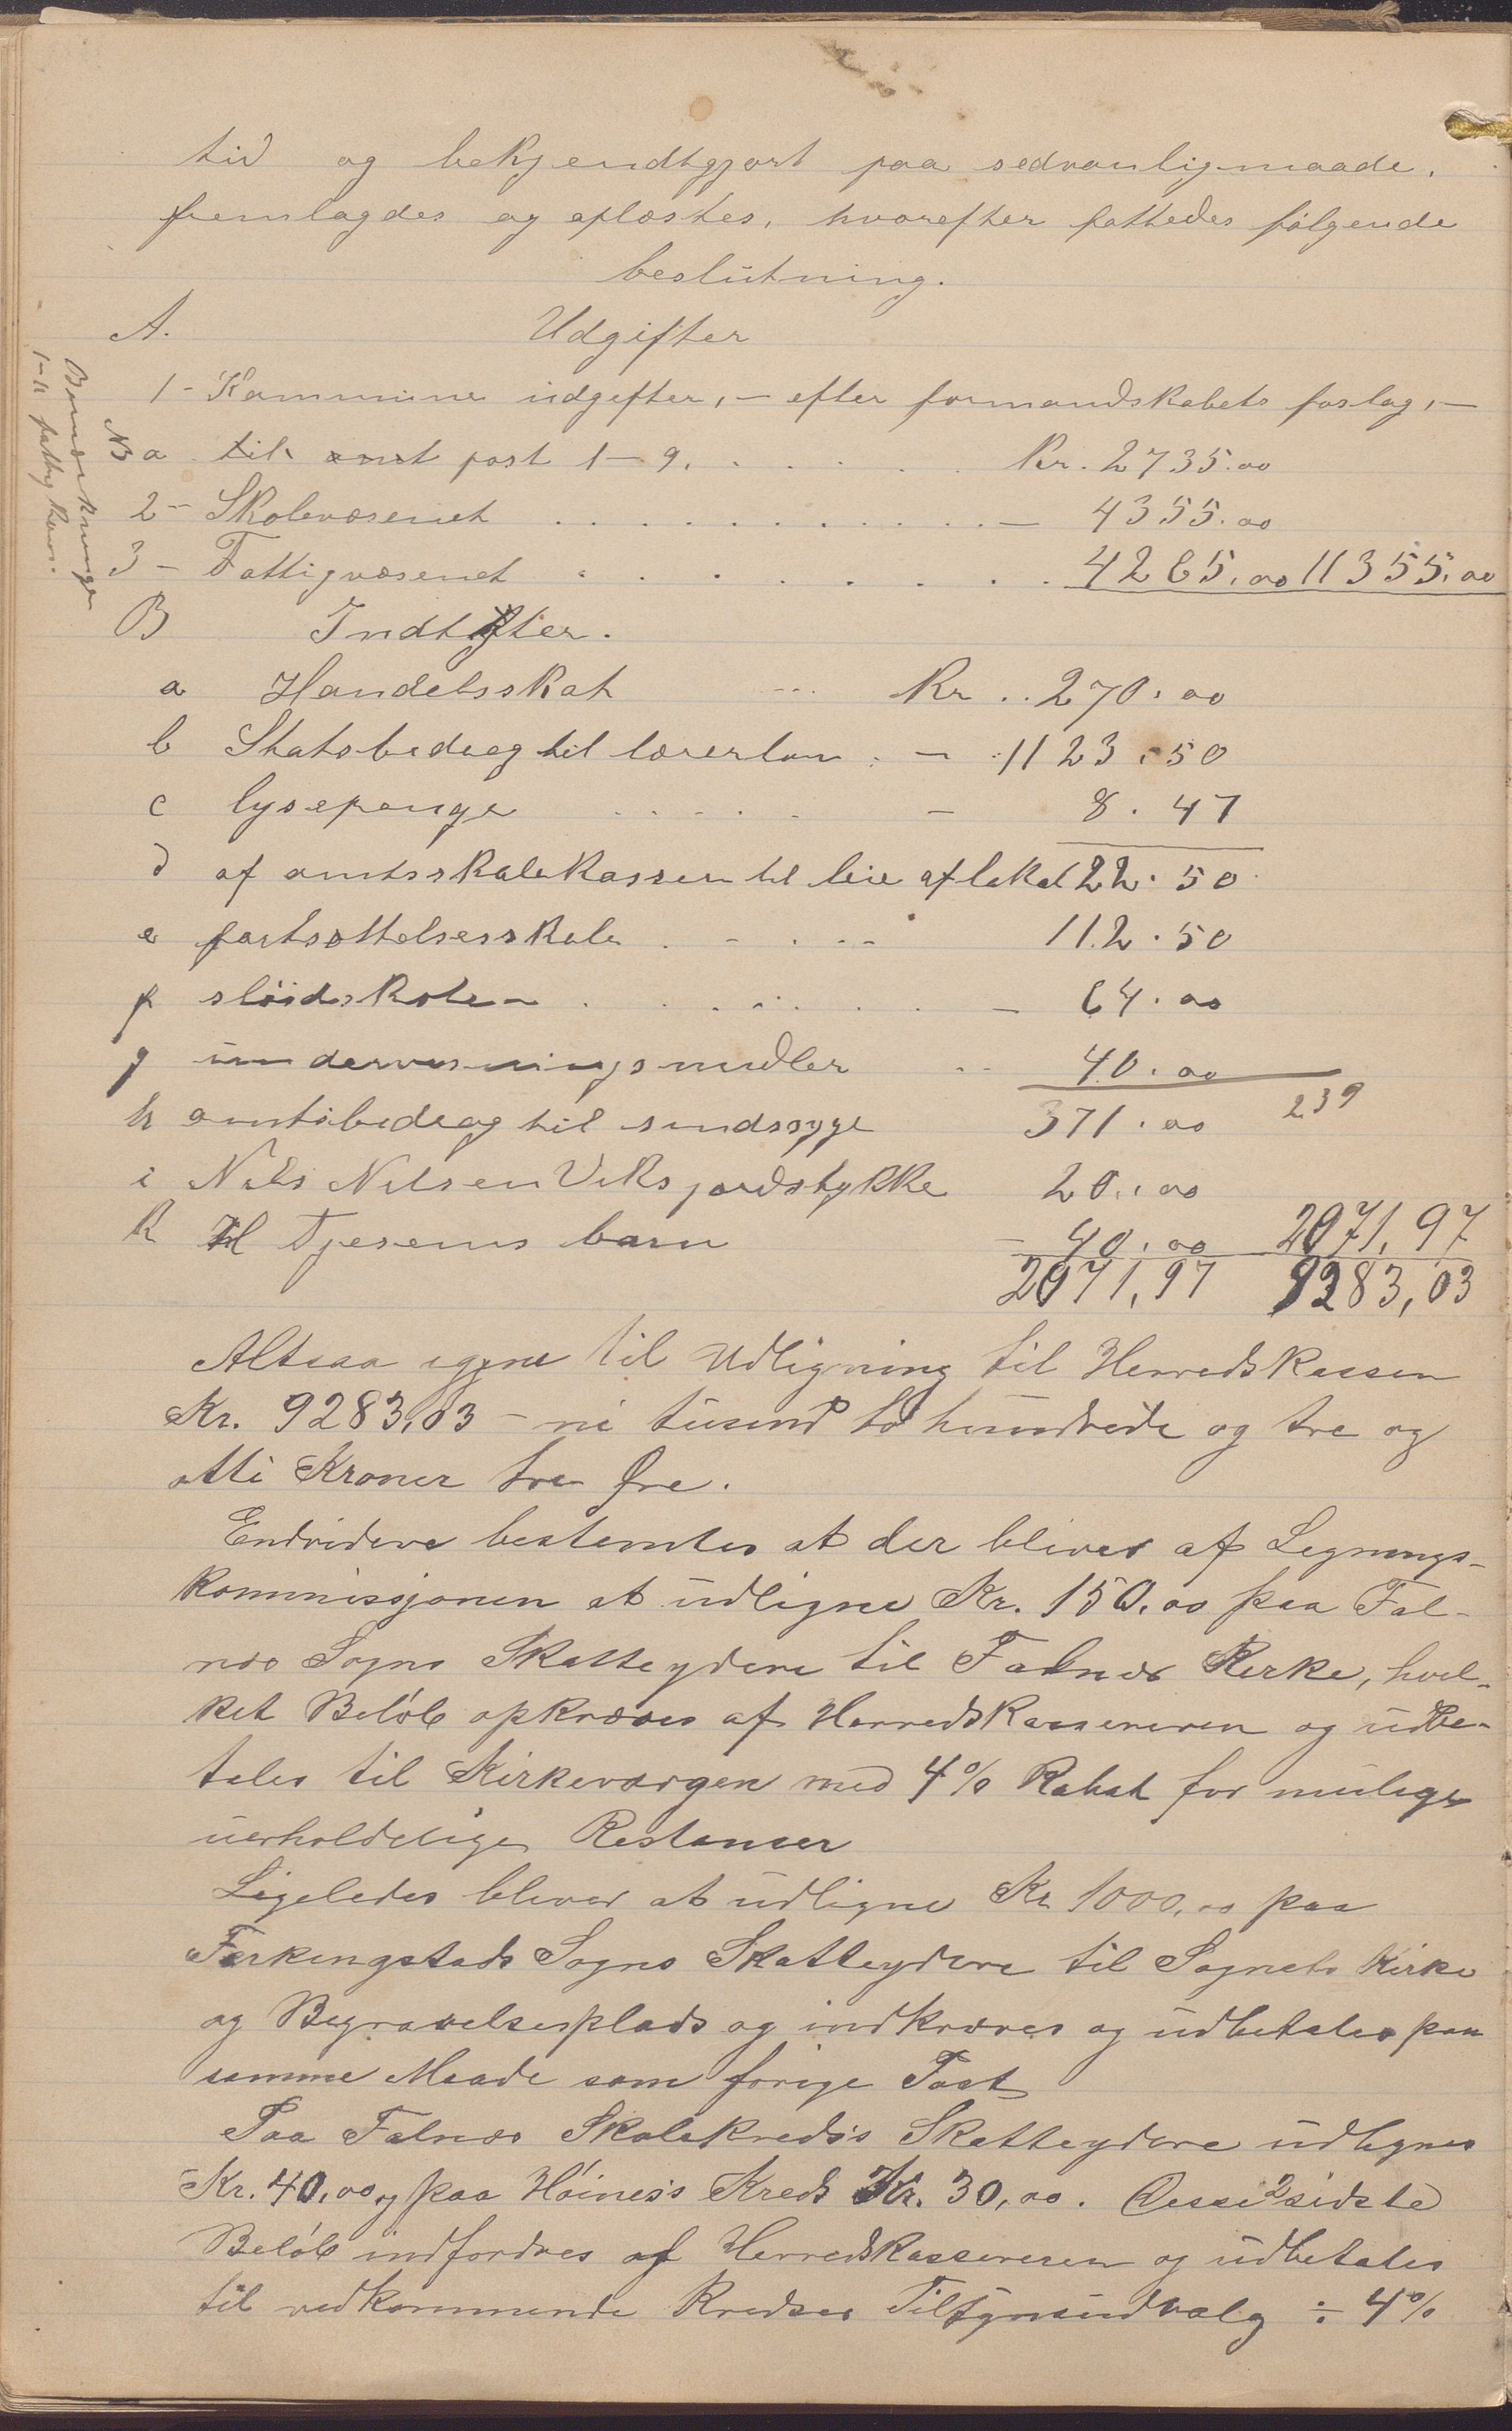 tid og bekjendtgjort paa sedvanlig maade,
fremlagdes og oplæstes, hvorefter fattedes følgende
beslutning.
A. Udgifter
1- Kommune udgefter, - efter formandskabets forslag, -
NB a til post 1-9. Kr. 2735.00
2- Skolevæsenet - 4355.00
3- Fattigvæsenet 4265.00 11355.00
Bemærkninger
1-11
B Indtgter.
a Handelsskat Kr .. 270.00
b Statsbidrag til lærerløn - 1123.50
c lysepenge - 8.47
d af amtsskolekassen til leie af lokal 22.50
e fortsættelsesskole 112.50
f sløidskolen - 64.00
g undervisningsmidler 40.00
239
h amtsbidrag til sindssyge 371.00
i Nils Nilsen Viks jordstykke 20.00
k Tjesems barn - 40.00 2071,97
2071,97 9283,03
Altsaa igjen til Udligning til Herredskassen
Kr. 9283,03 - ni tusind to hundrede og tre og
otti Kroner tre Øre.
Endvidere bestemtes at der bliver af Lignings-
kommissjonen at udligne Kr. 150,00 paa Fal-
næs Sogns Skatteydere til Falnæs Kirke, hvil-
ket Beløb opkræves af Herredskassereren og udbe-
tales til Kirkeværgen med 4% Rabat for mulige
uerholdelige Restanser
Ligeledes bliver at udligne Kr 1000,00 paa
Ferkingstads Sogns Skatteydere til Sognets Kirke
og Begravelsesplads og indkræves og udbetales paa
samme Maade som forige Post
Paa Falnæs Skolekreds's Skatteydere udlignes
Kr. 40,00 og paa Høines's Kreds Kr. 30,00. Disse 2 sidste
Beløb indfordres af Herredskassereren og udbetales
til vedkommende Kredses Tilsynsudvalg ÷ 4%